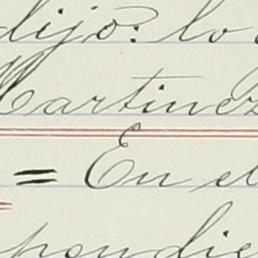 dijo: lo
Martinez
= En el
pondie